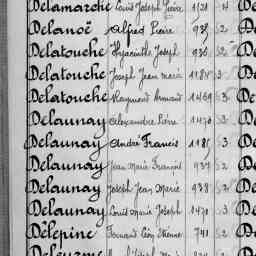 Delamarche Louis Joseph Pierre 1121 4
Delanoë Alfred Pierre 938 2
Delatouche Hyacinthe Joseph 936 2
Delatouche Joseph Jean Marie 1184 3
Delatouche Raymond Armand 1469 3
Delaunay Alexandre Pierre 1470 3
Delaunay André Francis 1185 3
Delaunay Jean Marie François 937 2
Delaunay Joseph Jean Marie 938 2
Delaunay Louis Marie Joseph 1471 3
Délépine Fernand Léon Etienne 741 2